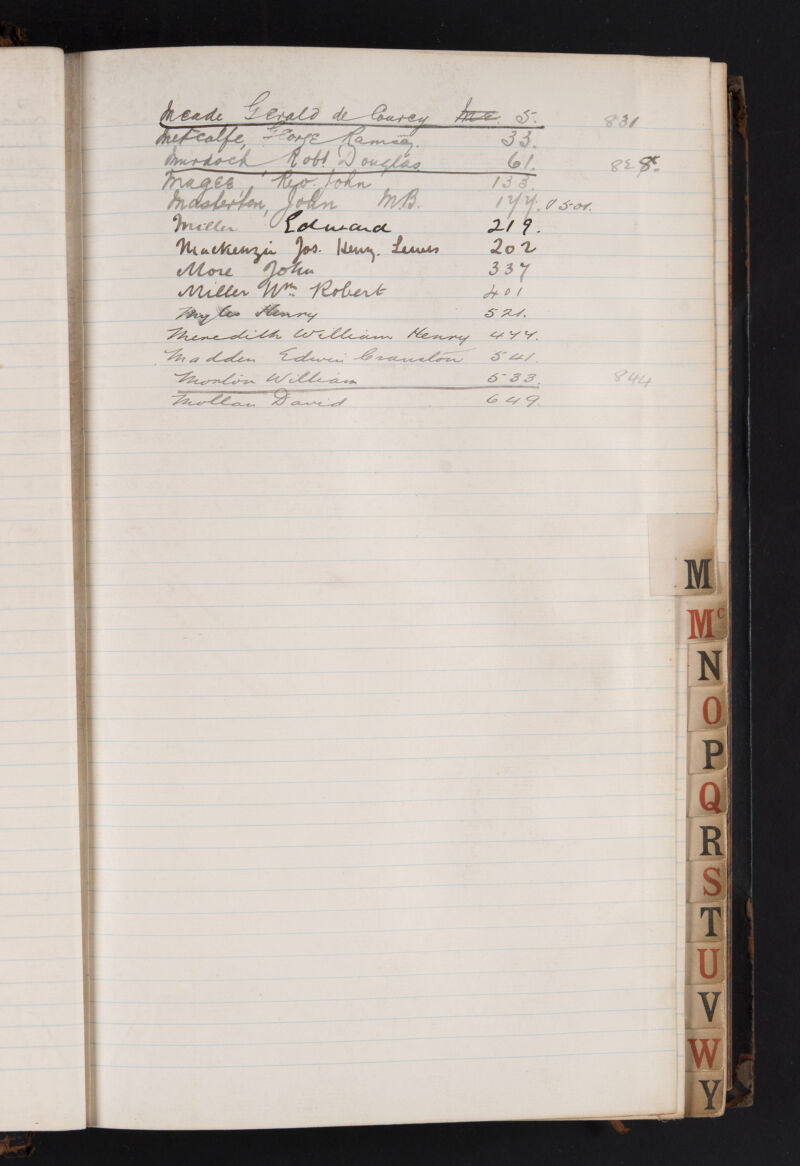 Meade Gerald de Courcy 5. 831
Metcalfe, George Ramsay. 33.
Murdoch Robt Douglas 61. 828
Magee, Rev. John 133.
Masterton, John MB. 177. 501.
Miller Edward 219.
Mackenzie Jos. Henry. Lewis 202
More John 337
Miller Wm Robert 401
Myles Henry 521.
Meredith William Henry 477.
Madden Edwin Cranston 541.
Morton William 533. 844
Mollan David 649.
M
Mc
N
O
P
Q
R
S
T
U
V
W
Y